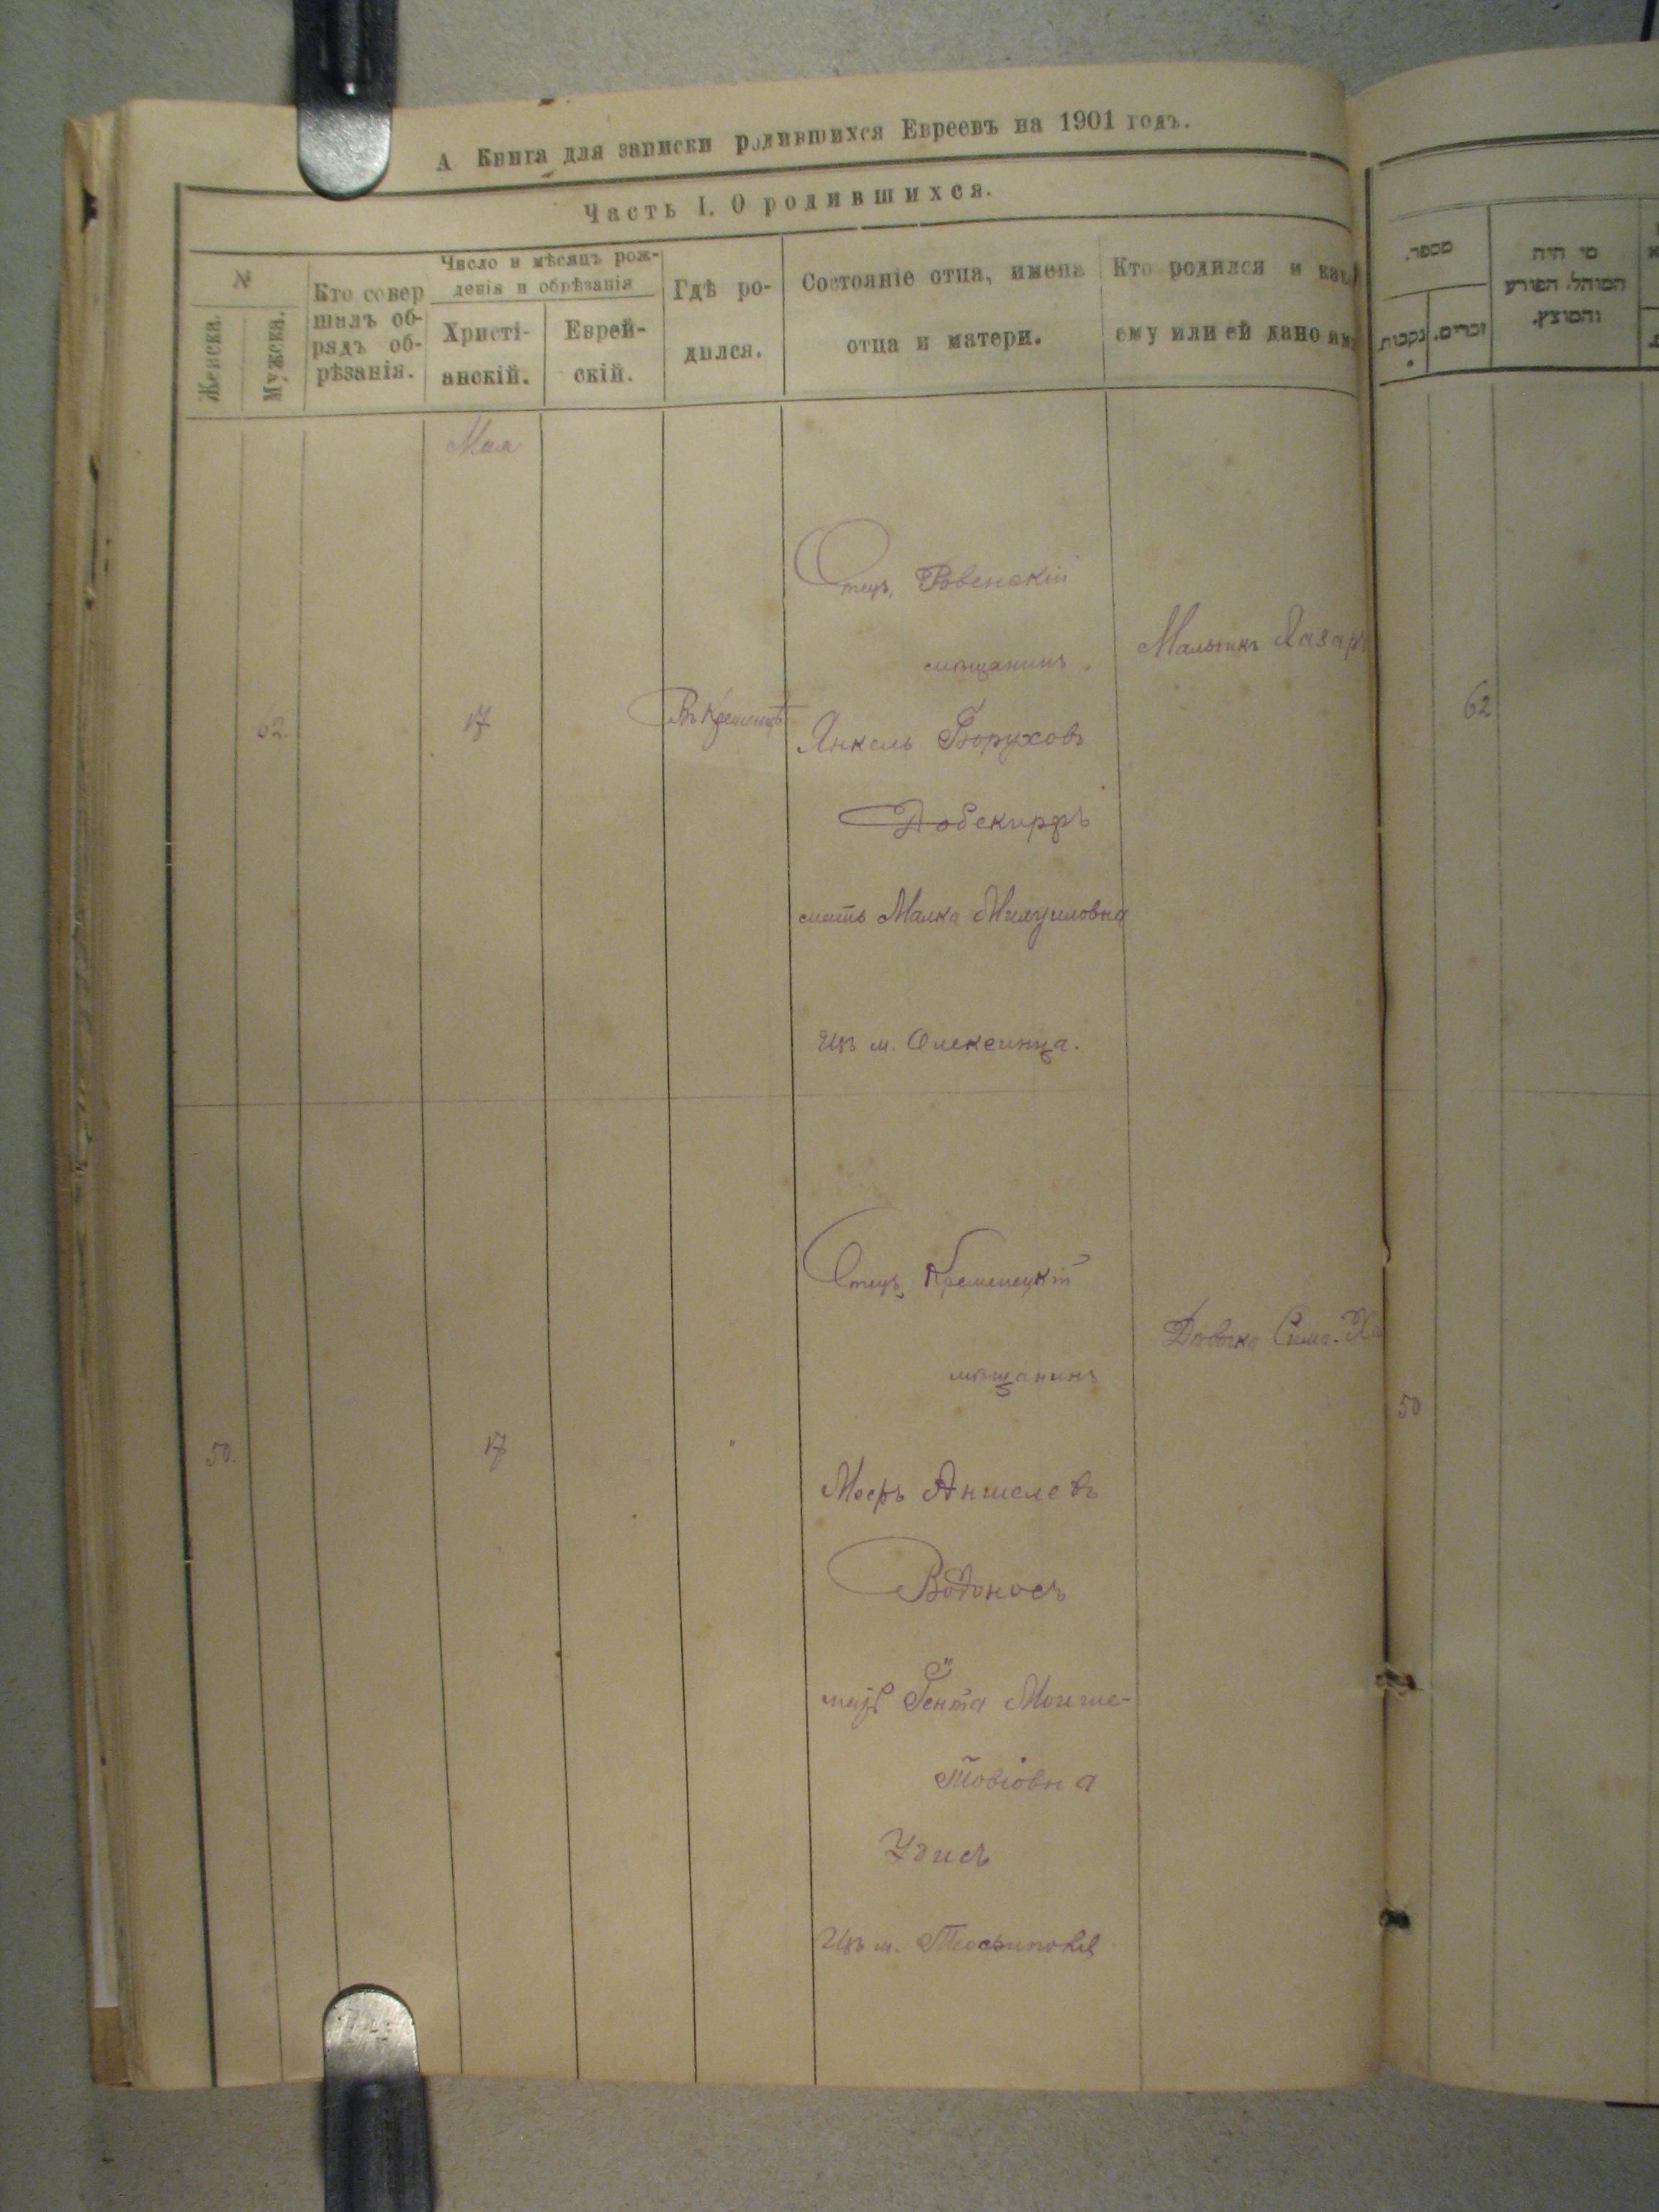 А Книга для записки родившихся Евреевъ на 1901 годъ.
Часть I. О родившихся.
№
Женска.
Мужска.
Кто совер
шалъ об-
рядъ об-
рѣзанія.
Число и мѣсяцъ рож-
денія и обрѣзанія
Христі-
анскій.
Еврей-
скій.
Гдѣ ро-
дился.
Состояніе отца, имена
отца и матери.
Кто родился и как
ему или ей дано им
Мая
62.
17
Въ Кременцѣ
Отецъ, Ровенскій
мѣщанинъ,
Янкель Боруховъ
мать Малка
Изъ м. Олексинца.
Мальчикъ Лазарь
50.
17
"
Отецъ, Кременецкій
мѣщанинъ
Мееръ Аншелевъ
Водоносъ
Гента Мошше-
Товіовна
Удисъ
Изъ м.
Дѣвочка Сима-Ха
מספר.
נקבות.
זכרים.
מי היה
המוהל, הפורע
והמוצץ.
62
50